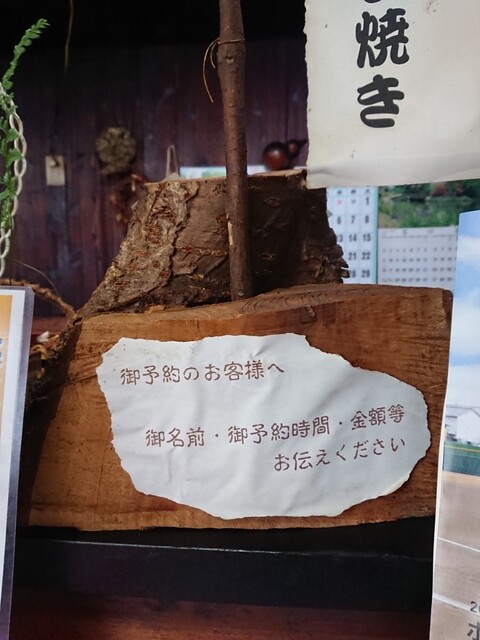 焼き
御予約のお客様へ
御名前・御予約時間・金額等
お伝えください